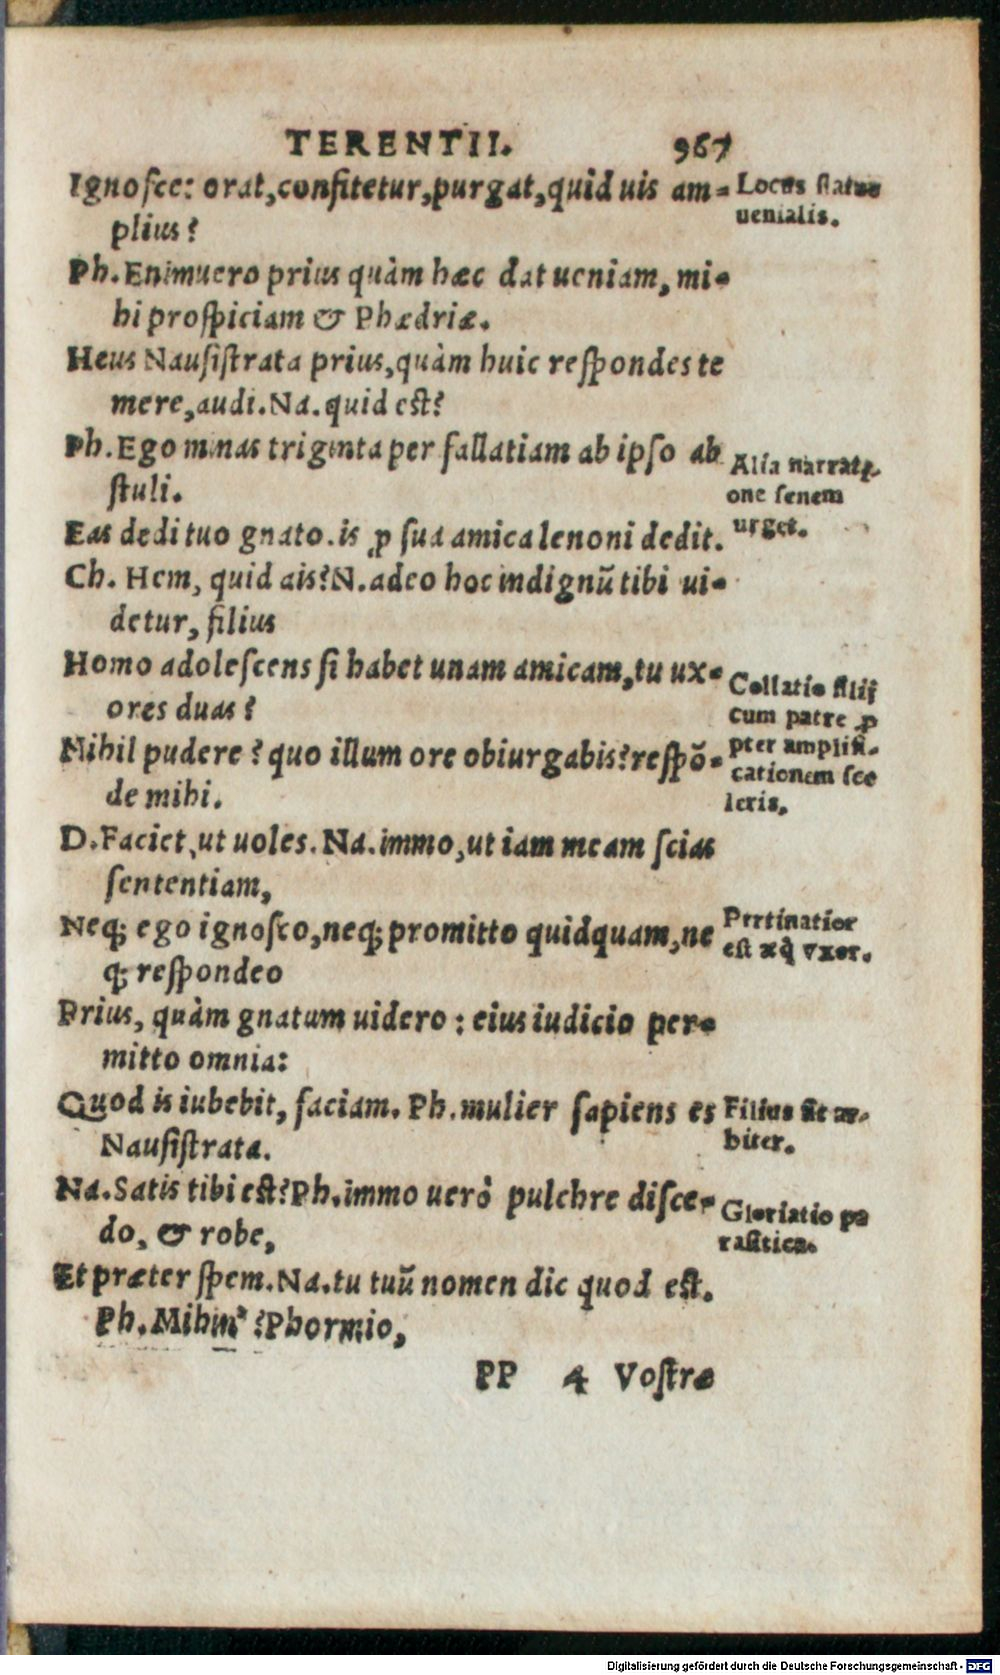 TERENTII. 967
Ignosce: orat, confitetur, purgat, quid uis am-
plius?
Ph. Enimuero prius quàm hæc dat ueniam, mi-
hi prospiciam & Phædriæ.
Heus Nausistrata prius, quàm huic respondes te
mere, audi. Na. quid est?
Ph. Ego minas triginta per fallatiam ab ipso ab
stuli.
Eas dedi tuo gnato. is ꝓ sua amica lenoni dedit.
Ch. Hem, quid ais? N. adeo hoc indignũ tibi ui-
detur, filius
Homo adolescens si habet unam amicam, tu ux-
ores duas?
Nihil pudere? quo illum ore obiurgabis? respõ-
de mihi.
D. Faciet, ut uoles. Na. immo, ut iam meam scias
sententiam,
Neq; ego ignosco, neq; promitto quidquam, ne
q; respondeo
Prius, quàm gnatum uidero: eius iudicio per-
mitto omnia:
Quod is iubebit, faciam. Ph. mulier sapiens es
Nausistrata.
Na. Satis tibi est? Ph. immo uerò pulchre disce-
do, & robe,
Et præter spem. Na. tu tuũ nomen dic quod est.
Ph. Mihin' ? Phormio,
PP 4 Vostræ
Locus status
uenialis.
Alia narrati-
one senem
urget.
Collatio filij
cum patre ꝓ
pter amplifi-
cationem sce
leris.
Pertinatior
est æq̃ vxor.
Filius sit ar-
biter.
Gloriatio pa
rasitica.
Digitalisierung gefördert durch die Deutsche Forschungsgemeinschaft - DFG